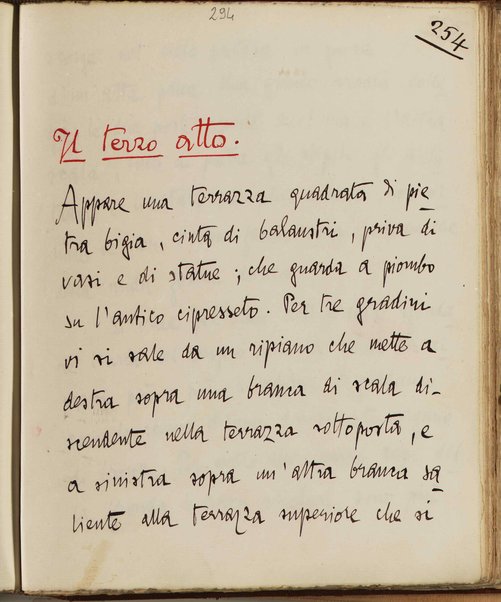 294
254
Il terzo atto.
Appare una terrazza quadrata di pie
tra bigia, cinta di balaustri, priva di
vasi e di statue; che guarda a piombo
su l'antico cipresseto. Per tre gradini
vi si sale da un ripiano che mette a
destra sopra una branca di scala di-
scendente nella terrazza sottoposta, e
a sinistra sopra un'altra branca sa
liente alla terrazza superiore che si